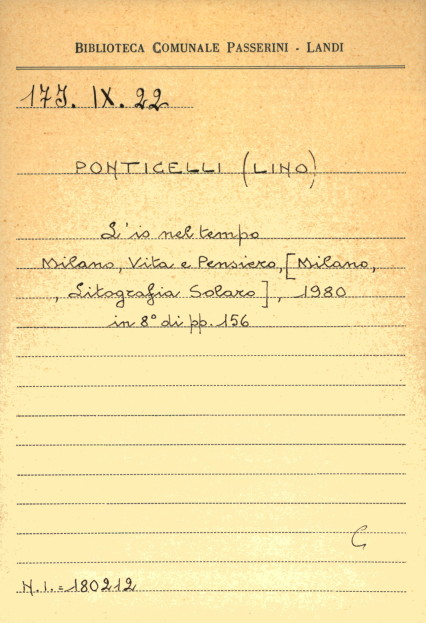 BIBLIOTECA COMUNALE PASSERINI - LANDI
17J. IX. 22
PONTICELLI (LINO)
L'io nel tempo
Milano, Vita e Pensiero, [Milano,
, Litografia Solaro], 1980
in 8° di pp. 156
G
N.I.= 180212